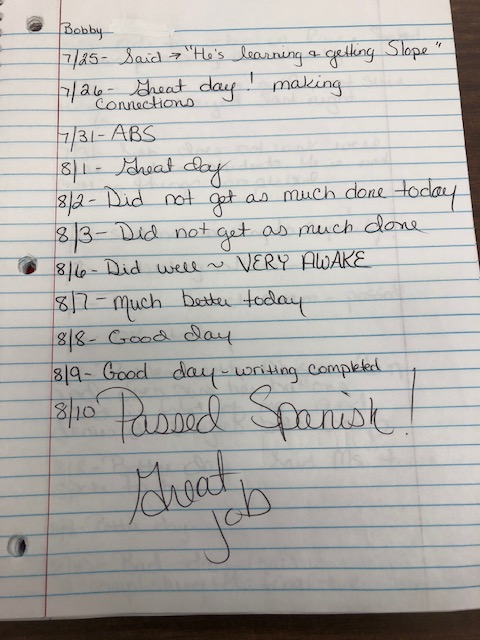 Bobby
7/25- Said → "He's learning & getting Slope"
7/26- Great day! making
connections
7/31- ABS
8/1- Great day
8/2- Did not get as much done today
8/3- Did not get as much done
8/6- Did well ~ VERY AWAKE
8/7- Much better today
8/8- Good day
8/9- Good day - writing completed
8/10 Passed Spanish!
Great
job